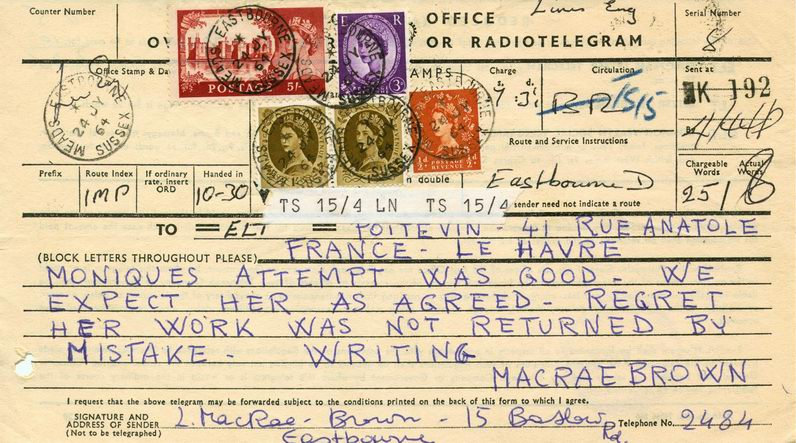 Counter Number
OFFICE
Serial Number
OV
OR RADIOTELEGRAM
8
Office Stamp & Da
STAMPS
Charge
Circulation
Sent at
s. d.
7 - 3½
BR 1515
HK 192
By
MEADS EASTBOURNE SUSSEX
24 JY 64
EASTBOURNE
24 JY 64
SUSSEX
POSTAGE 5/-
E R
3D
POSTAGE REVENUE
½D
Route and Service Instructions
Prefix
Route Index
If ordinary rate, insert ORD
Handed in
n double
Eastbourne D
Chargeable Words
Actual Words
IMP
10-30
sender need not indicate a route
25 / 18
TS 15/4 LN TS 15/4
TO = ELT = POITEVIN - 41 RUE ANATOLE
(BLOCK LETTERS THROUGHOUT PLEASE) FRANCE - LE HAVRE
MONIQUES ATTEMPT WAS GOOD - WE
EXPECT HER AS AGREED - REGRET
HER WORK WAS NOT RETURNED BY
MISTAKE - WRITING
MACRAE BROWN
I request that the above telegram may be forwarded subject to the conditions printed on the back of this form to which I agree.
SIGNATURE AND
ADDRESS OF SENDER
(Not to be telegraphed)
L. MacRae - Brown - 15 Baslow Rd.
Telephone No. 2484
Eastbourne